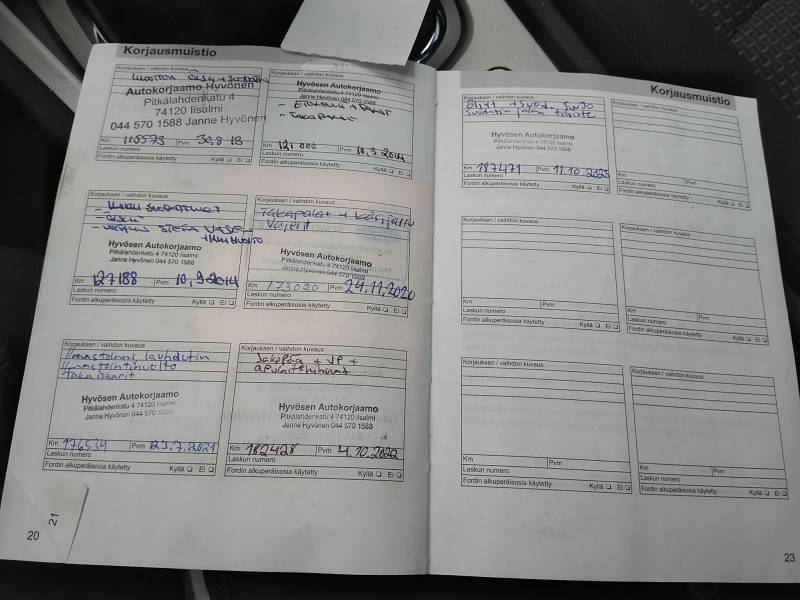 Korjausmuistio
Korjauksen / vaihdon kuvaus
Autokorjaamo Hyvönen
Pitkälahdenkatu 4
74120 Iisalmi
044 570 1588 Janne Hyvönen
Km 110573 Pvm 30.8.13
Laskun numero
Fordin alkuperäisosia käytetty Kyllä Ei
Korjauksen / vaihdon kuvaus
Hyvösen Autokorjaamo
Pitkälahdenkatu 4 74120 Iisalmi
Janne Hyvönen 044 570 1588
- TAKAPALAT
Km 121 000 Pvm 11.3.2014
Laskun numero
Fordin alkuperäisosia käytetty Kyllä Ei
Korjauksen / vaihdon kuvaus
Hyvösen Autokorjaamo
Pitkälahdenkatu 4 74120 Iisalmi
Janne Hyvönen 044 570 1588
Km 127188 Pvm 10.9.2014
Laskun numero
Fordin alkuperäisosia käytetty Kyllä Ei
Korjauksen / vaihdon kuvaus
Takapalat + käsijarru
vaijerit
Hyvösen Autokorjaamo
Pitkälahdenkatu 4 74120 Iisalmi
Janne Hyvönen 044 570 1588
Km 173020 Pvm 24.11.2020
Laskun numero
Fordin alkuperäisosia käytetty Kyllä Ei
Korjauksen / vaihdon kuvaus
Ilmastoinni lauhdutin
Ilmastointihuolto
Takaiskarit
Hyvösen Autokorjaamo
Pitkälahdenkatu 4 74120 Iisalmi
Janne Hyvönen 044 570 1588
Km 176534 Pvm 23.7.2021
Laskun numero
Fordin alkuperäisosia käytetty Kyllä Ei
Korjauksen / vaihdon kuvaus
Jakopää + VP +
apulaitehihnat
Hyvösen Autokorjaamo
Pitkälahdenkatu 4 74120 Iisalmi
Janne Hyvönen 044 570 1588
Km 182428 Pvm 4.10.2022
Laskun numero
Fordin alkuperäisosia käytetty Kyllä Ei
20
21
Korjausmuistio
Korjauksen / vaihdon kuvaus
Öljyt + suod. 5W30
Hyvösen Autokorjaamo
Pitkälahdenkatu 4 74120 Iisalmi
Janne Hyvönen 044 570 1588
Km 187471 Pvm 11.10.2023
Laskun numero
Fordin alkuperäisosia käytetty Kyllä Ei
Korjauksen / vaihdon kuvaus
Km Pvm
Laskun numero
Fordin alkuperäisosia käytetty Kyllä Ei
Korjauksen / vaihdon kuvaus
Km Pvm
Laskun numero
Fordin alkuperäisosia käytetty Kyllä Ei
Korjauksen / vaihdon kuvaus
Km Pvm
Laskun numero
Fordin alkuperäisosia käytetty Kyllä Ei
Korjauksen / vaihdon kuvaus
Km Pvm
Laskun numero
Fordin alkuperäisosia käytetty Kyllä Ei
Korjauksen / vaihdon kuvaus
Km Pvm
Laskun numero
Fordin alkuperäisosia käytetty Kyllä Ei
23